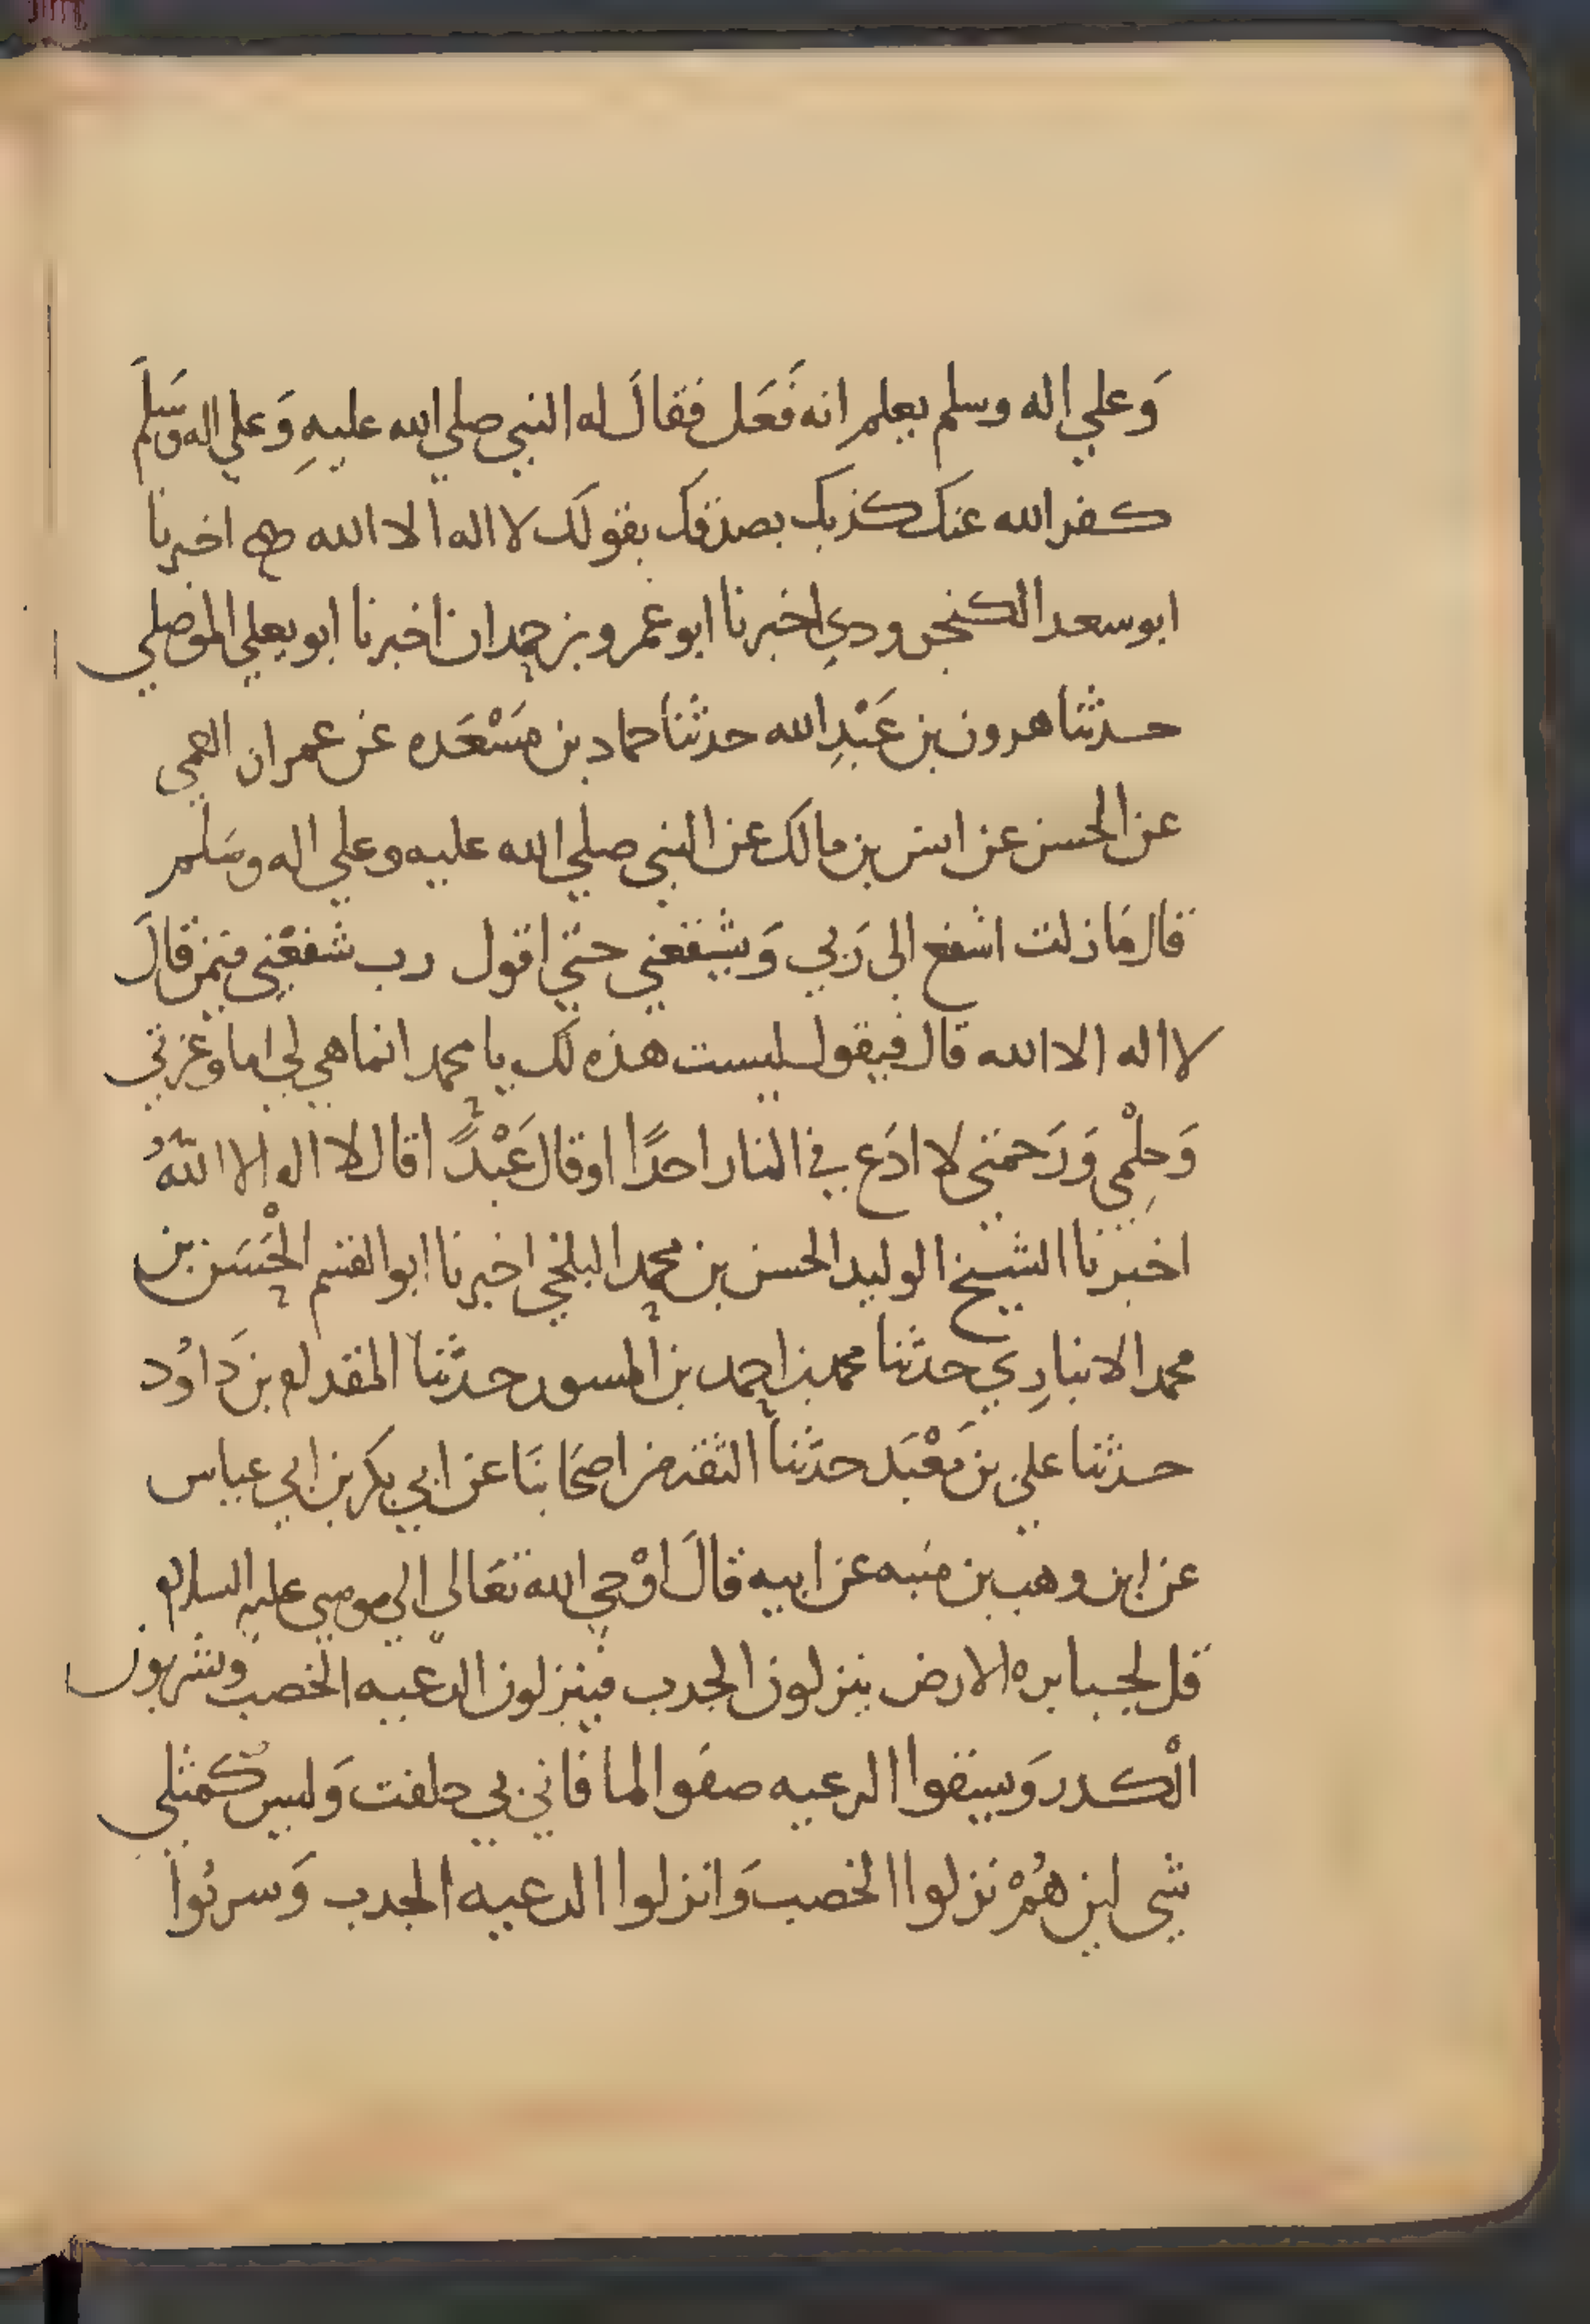 وَعلي اله وسلم يعلم انه فَعَل فقالَ له النبي صلي الله عليهِ وَعلي اله وسَلمَ
كفر الله عنك كذبك بصدقك بقولك لا اله الا الله اخبرنا
ابو سعد الكنجرودي اخبرنا ابو عمرو بن حمدان اخبرنا ابو يعلي الموصلي
حدثنا هرون بن عَبْدِ الله حدثنا حماد بن مَسْعَده عن عمران العمي
عن الحسن عن انس بن مالك عن النبي صلي الله عليه وعلي اله وسَلم
قال مَا زلت اشفع الى رَبي وَيشفعني حتي اقول رب شفعْني فيمن قالَ
لا اله الا الله قال فيقول ليست هذه لك يا محمد انما هي لي اما وعزتي
وَحِلْمي وَرَحمتي لا ادَع في النار احدًا او قال عَبْدًا قال لا اله الا اللهُ
اخبرنا الشيخ الوليد الحسن بن محمد البلخي اخبرنا ابو القسم الْحَسَن بن
محمد الانبارِي حدثنا محمد بن احمد بن المسور حدثنا المقدام بن دَاوُد
حدثنا علي بن مَعْبَد حدثنا الثقه من اصحَابنَا عن ابي بكر بن ابي عياس
عن ابن وهب بن منبه عن ابيه قالَ اوْحي الله تعَالي الي موسي عليه السلام
قل لجبابره الارض ينزلون الجدب فينزلون الرعيه الخصب ويشربون
الْكدر وَيسقوا الرعيه صفو الما فاني بي حلفت وَليس كمثلي
شي لين هُمْ نزلوا الخصب وَانزلوا الرعيه الجدب وَسربُوا